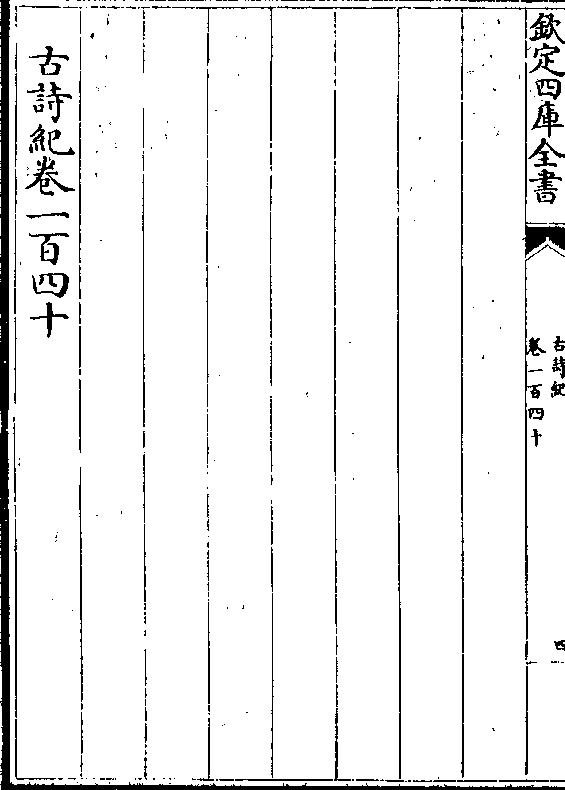 欽定四庫全書
古詩紀
卷一百四十
四
古詩紀卷一百四十